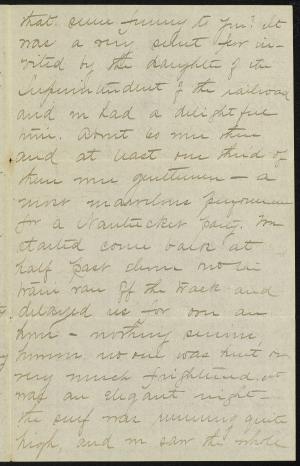 that seem funny to you? It
was a very select few in-
vited by the daughter of the
Superintendent of the railroad
and we had a delightful
time. About 60 were there
and at least one third of
them were gentlemen - a
most marvelous
for a Nantucket party. We
started come back at
half past eleven
train ran off the track and
delayed us for over an
hour - nothing serious
however, no one was hurt, or
very much frightened. It
was an elegant night
the surf was running quite
high, and we saw the whole